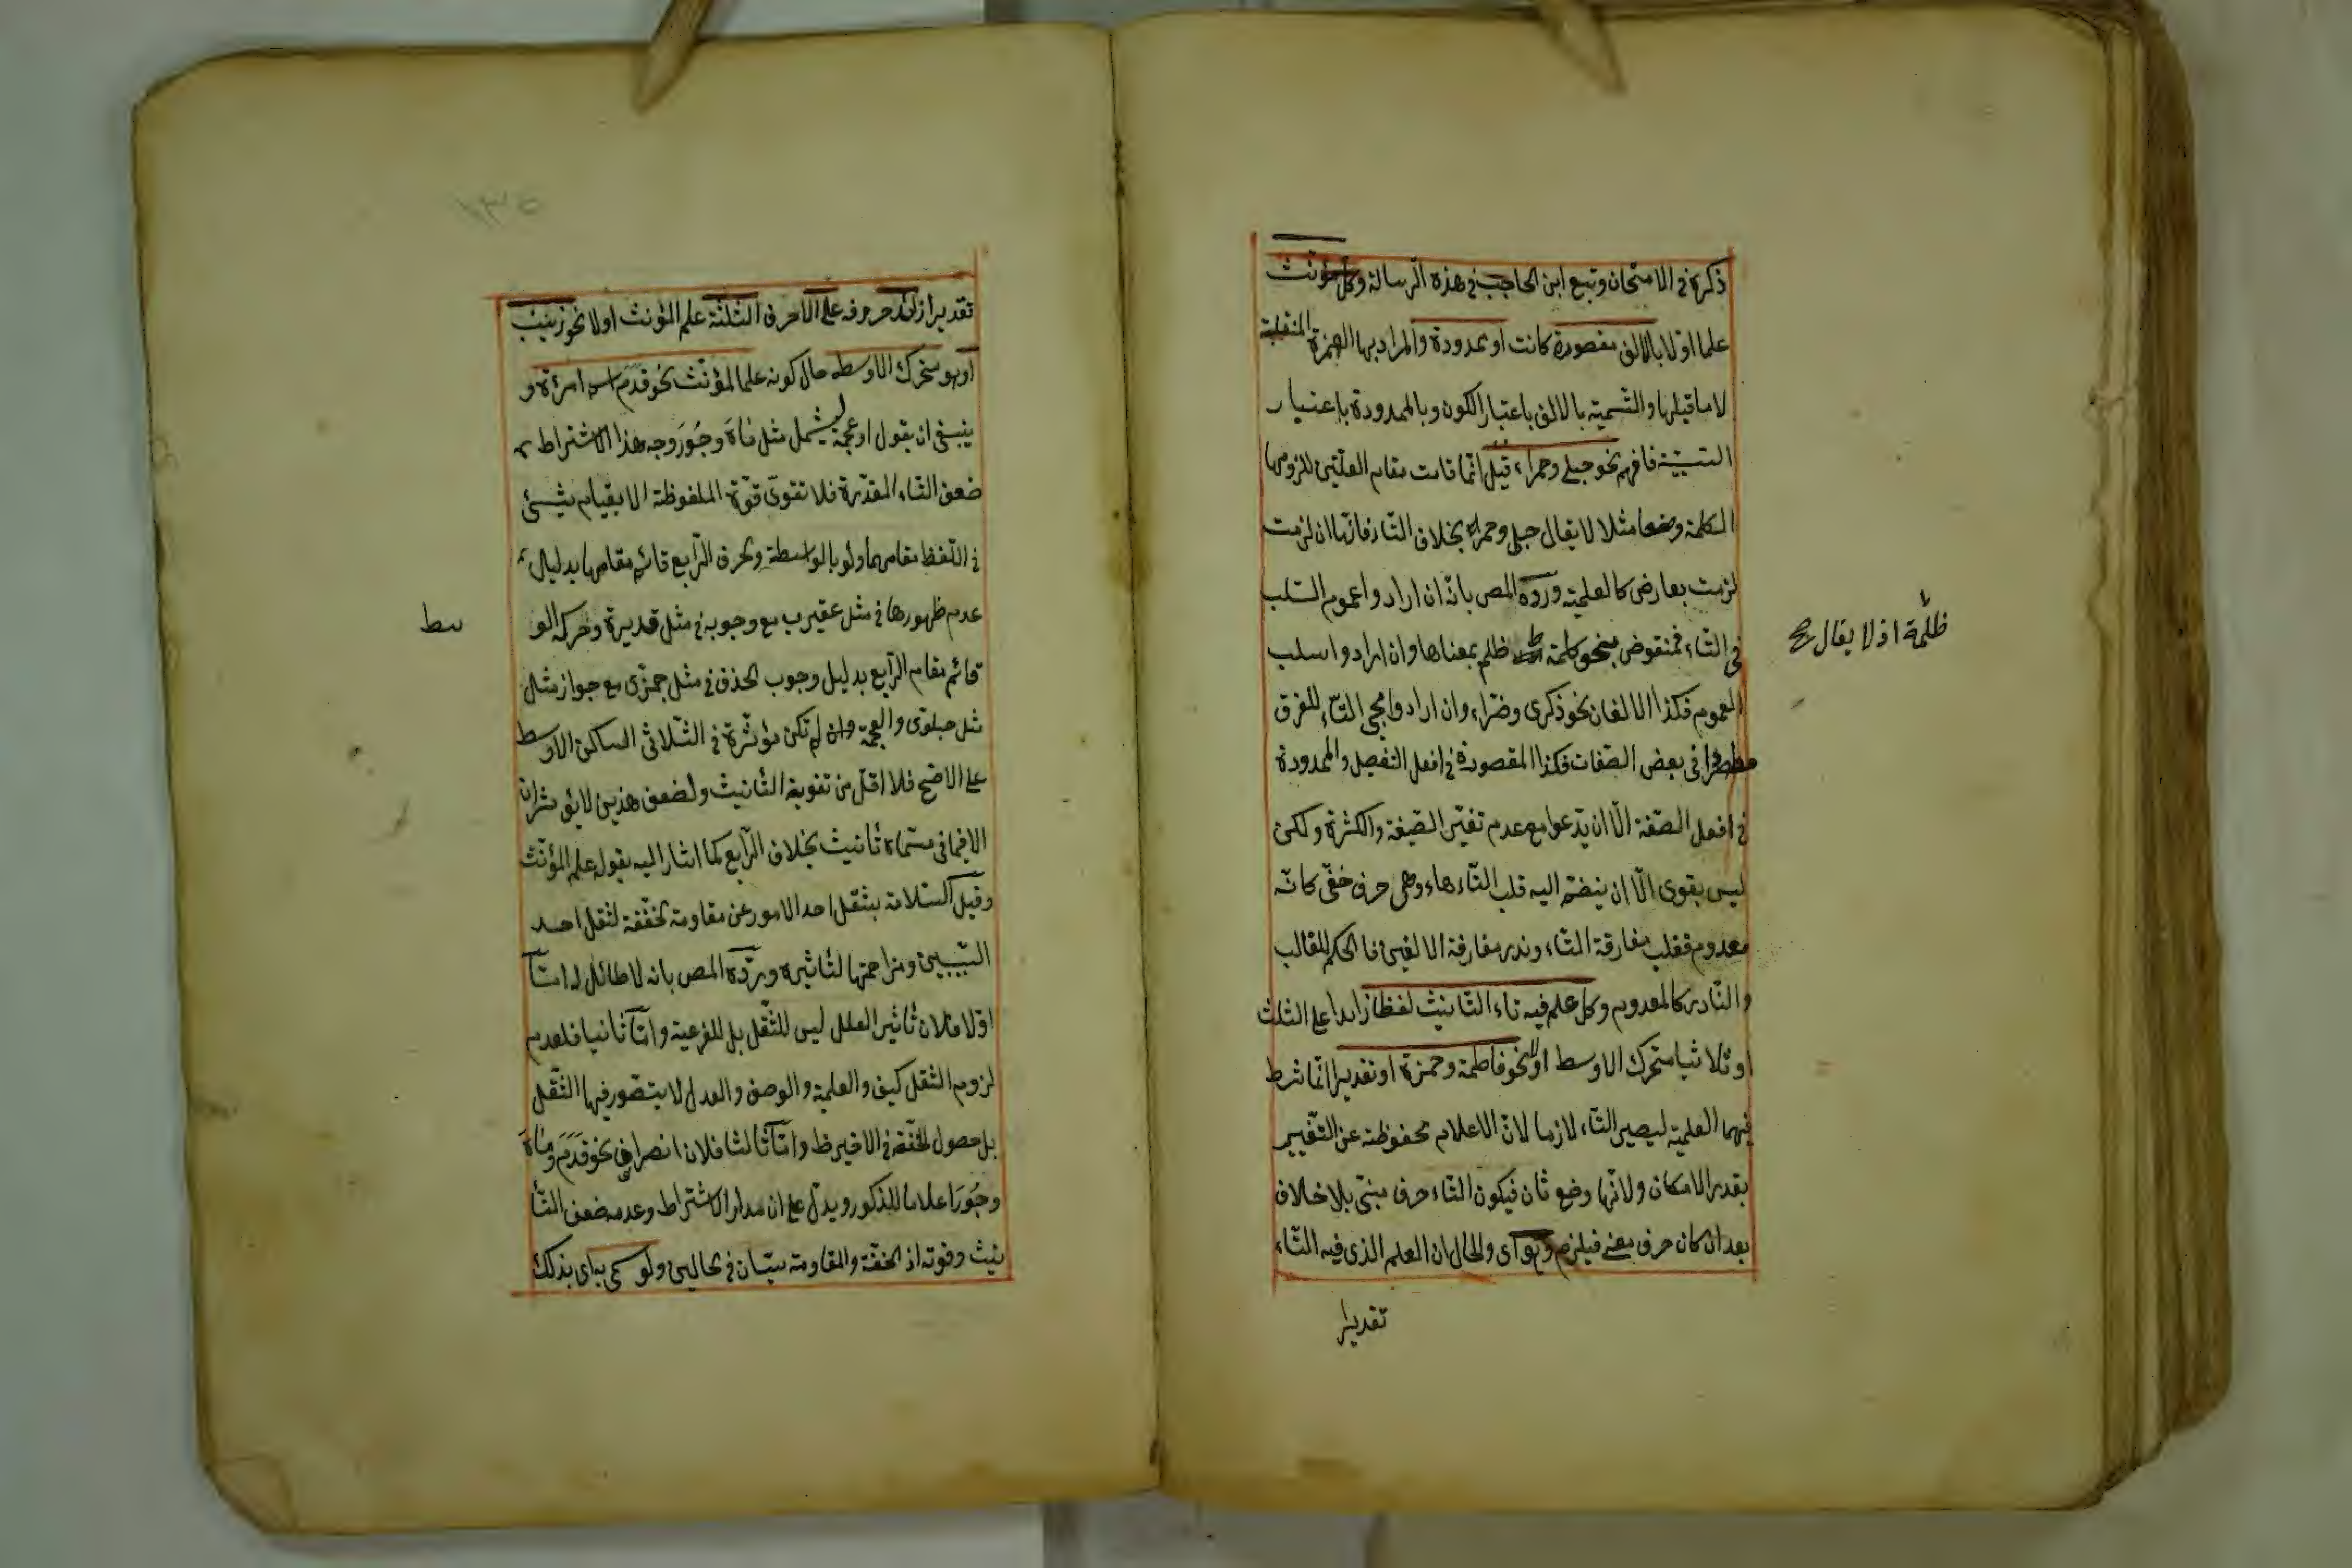 ذكره فى الامتحان وتبع ابن الحاجب فى هذه الرسالة وكل مؤنث
علما اولا بالالف مقصورة كانت او ممدودة والمراد بها الهمزة المنقلبة
لا ما قبلها والتسمية بالالف باعتبار الكون وبالممدودة باعتبار
فافهم نحو حبلى وحمراء قيل انما قامت مقام العلتين للزومها
الكلمة وضعا مثلا لا يقال حبل وحمر بخلاف التاء فانها ان لزمت
لزمت بعارض كالعلمية ورده المص بانه ان ارادوا عموم السلب
فى التاء فمنقوض بنحو كلمة ظلم بمعناها وان ارادوا سلب
ظلمة اذ لا يقال صح
العموم فكذا الالفان نحو ذكرى وضراء وان ارادوا مجئ التاء للفرق
فى بعض الصفات فكذا المقصورة فى افعل التفضيل والممدودة
فى افعل الصفة الا ان يدعوا مع عدم تغير الصيغة والكثرة ولكن
ليس بقوى الا ان ينضم اليه قلب التاء هاء وهى حرف خفى كانه
معدوم فقلب مفارقة التاء وندر مفارقة الالفين فالحكم للغالب
والنادر كالمعدوم وكل علم فيه تاء التانيث لفظا زايدا على الثلث
او ثلاثيا متحرك الاوسط اولا نحو فاطمة وحمزة او تقديرا انما شرط
فيهما العلمية ليصير التاء لازما لان الاعلام محفوظة عن التغيير
بقدر الامكان ولانها وضع ثان فيكون التاء حرف مبنى بلا خلاف
بعد ان كان حرف معنى فيلزم وهو اى والحال ان العلم الذى فيه التاء
تقديرا
تقديرا زائد حروفه على الاحرف الثلثة علم المؤنث اولا نحو زينب
او هو متحرك الاوسط حال كونه علما لمؤنث نحو قدم اسم امرأة و
ينبغى ان يقول او عجمة ليشمل مثل ماه وجور وجه هذا الاشتراط
ضعف التاء المقدرة فلا تقوى قوة الملفوظة الا بقيام شيئ
فى اللفظ مقامها ولو بالواسطة والحرف الرابع قائم مقامها بدليل
عدم ظهورها فى مثل عقيرب مع وجوبه فى مثل قديرة وحركة الو
سط
قائم مقام الرابع بدليل وجوب الحذف فى مثل جمزى مع جواز مثل
مثل حبلوى والعجمة وان لم تكن مؤثرة فى الثلاثى الساكن الاوسط
على الاصح فلا اقل من تقوية التانيث ولضعف هذين لا يؤثران
الا فيما فى مسماه تانيث بخلاف الرابع كما اشار اليه بقوله علم المؤنث
وقيل السلامة بثقل احد الامور عن مقاومة الخفة لثقل احد
السببين ومزاحمتها لتاثيره ورده المص بانه لا طائل له اما
اولا فلان تاثير العلل ليس للثقل بل للفرعية واما ثانيا فلعدم
لزوم الثقل كيف والعلمية والوصف والعدل لا يتصور فيها الثقل
بل حصول الخفة فى الاخير ظ واما ثالثا فلان انصراف نحو قدم وماه
وجور اعلاما للذكور ويدل على ان مدار الاشتراط وعدمه ضعف التا
نيث وقوته اذ الخفة والمقاومة سيان فى الحالين ولو سمى به اى بذلك